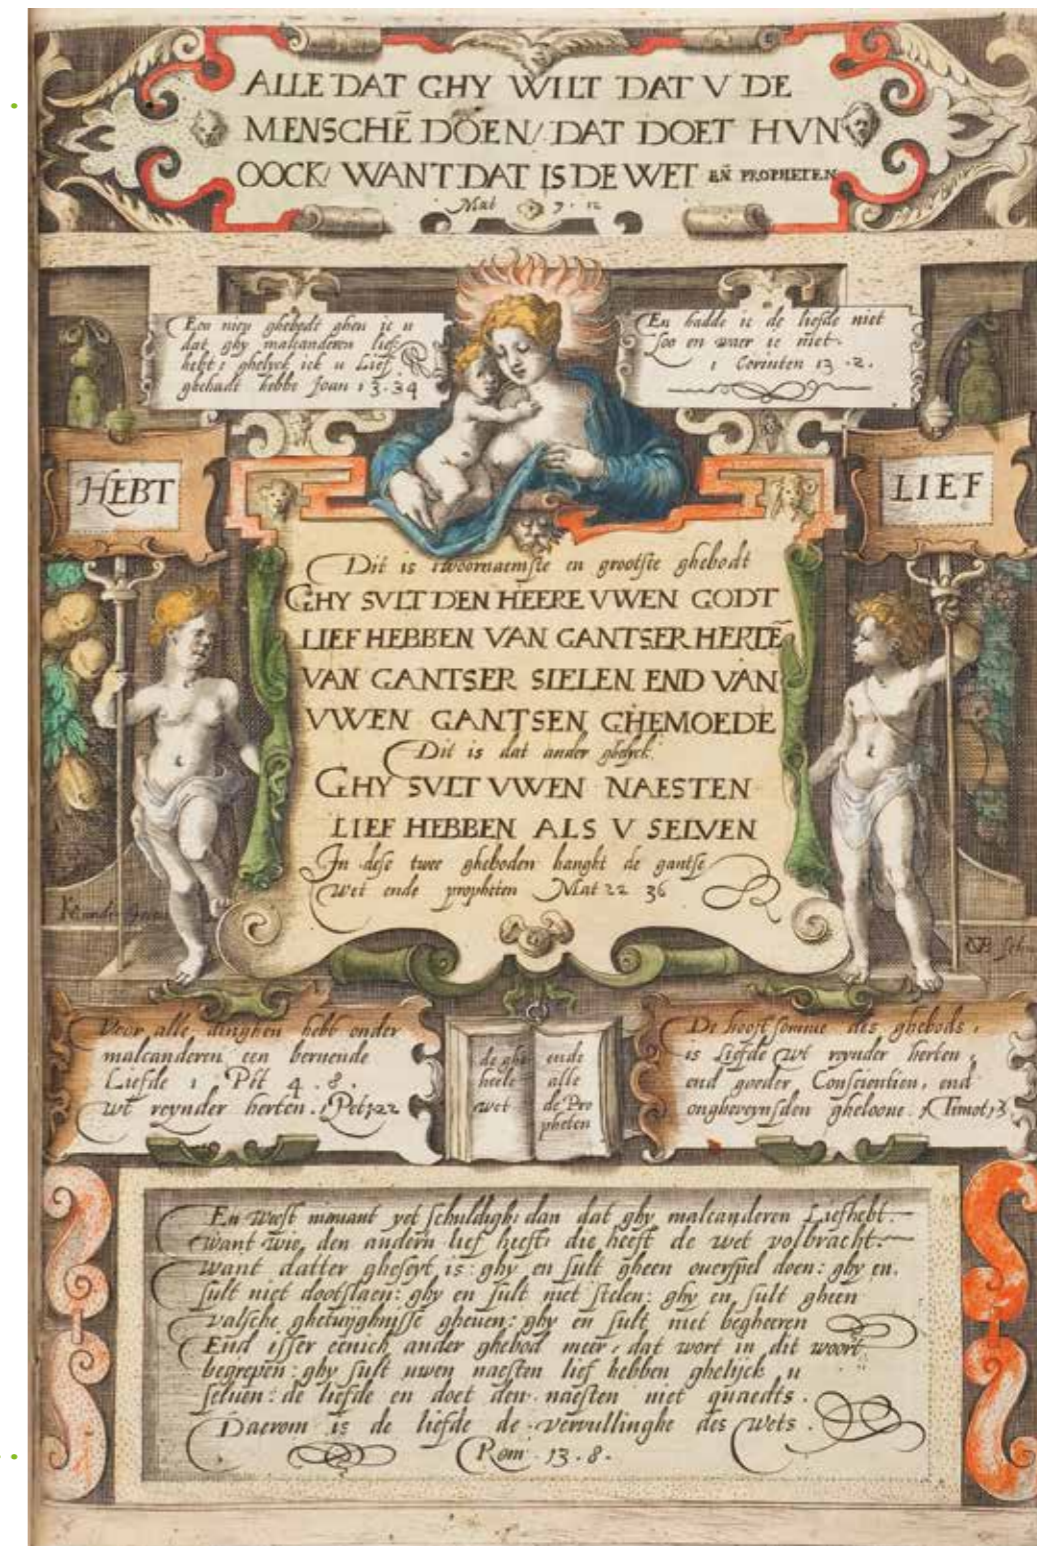 ALLE DAT GHY WILT DAT V DE
MENSCHẼ DOEN/ DAT DOET HVN
OOCK/ WANT DAT IS DE WET EÑ PROPHETEN
Mat 7. 12
Een nieu ghebodt gheu ic u
dat ghy malcanderen lief
hebt: ghelyck ick u Lief
ghehadt hebbe Joan 13.34
En hadde ic de liefde niet
Soo en waer ic niet.
1 Corinten 13 .2.
HEBT
LIEF
Dit is tvoornaemste en grootste ghebodt
GHY SVLT DEN HEERE VWEN GODT
LIEF HEBBEN VAN GANTSER HERTẼ
VAN GANTSER SIELEN END VAN
VWEN GANTSEN GHEMOEDE
Dit is dat ander ghelyck.
GHY SVLT VWEN NAESTEN
LIEF HEBBEN ALS V SELVEN
In dese twee gheboden hanght de gantse
Wet ende propheten Mat 22 36
Voor alle dinghen hebt onder
malcanderen een bernende
Liefde 1 Pet 4 .8.
wt reynder herten. 1 Pet 1 22
de ghe
heele
wet
ende
alle
de Pro
pheten
De hooft somme des ghebods,
is Liefde wt reynder herten,
end goeder Conscientien, end
ongheveynsden gheloove. 1 Timot 1 3.
En weest niemant yet schuldigh: dan dat ghy malcanderen Liefhebt.
want wie den andern lief heeft: die heeft de wet volbracht.
want datter gheseyt is: ghy en sult gheen overspel doen: ghy en.
sult niet dootslaen: ghy en sult niet stelen: ghy en sult gheen
valsche ghetuyghnisse gheuen: ghy en sult niet begheeren
End isser eenich ander ghebod meer, dat wort in dit woort
begrepen: ghy sult uwen naesten lief hebben ghelijck u
seluen: de liefde en doet den naesten niet quaedts.
Daerom is de liefde de vervullinghe des Wets.
Rom. 13.8.